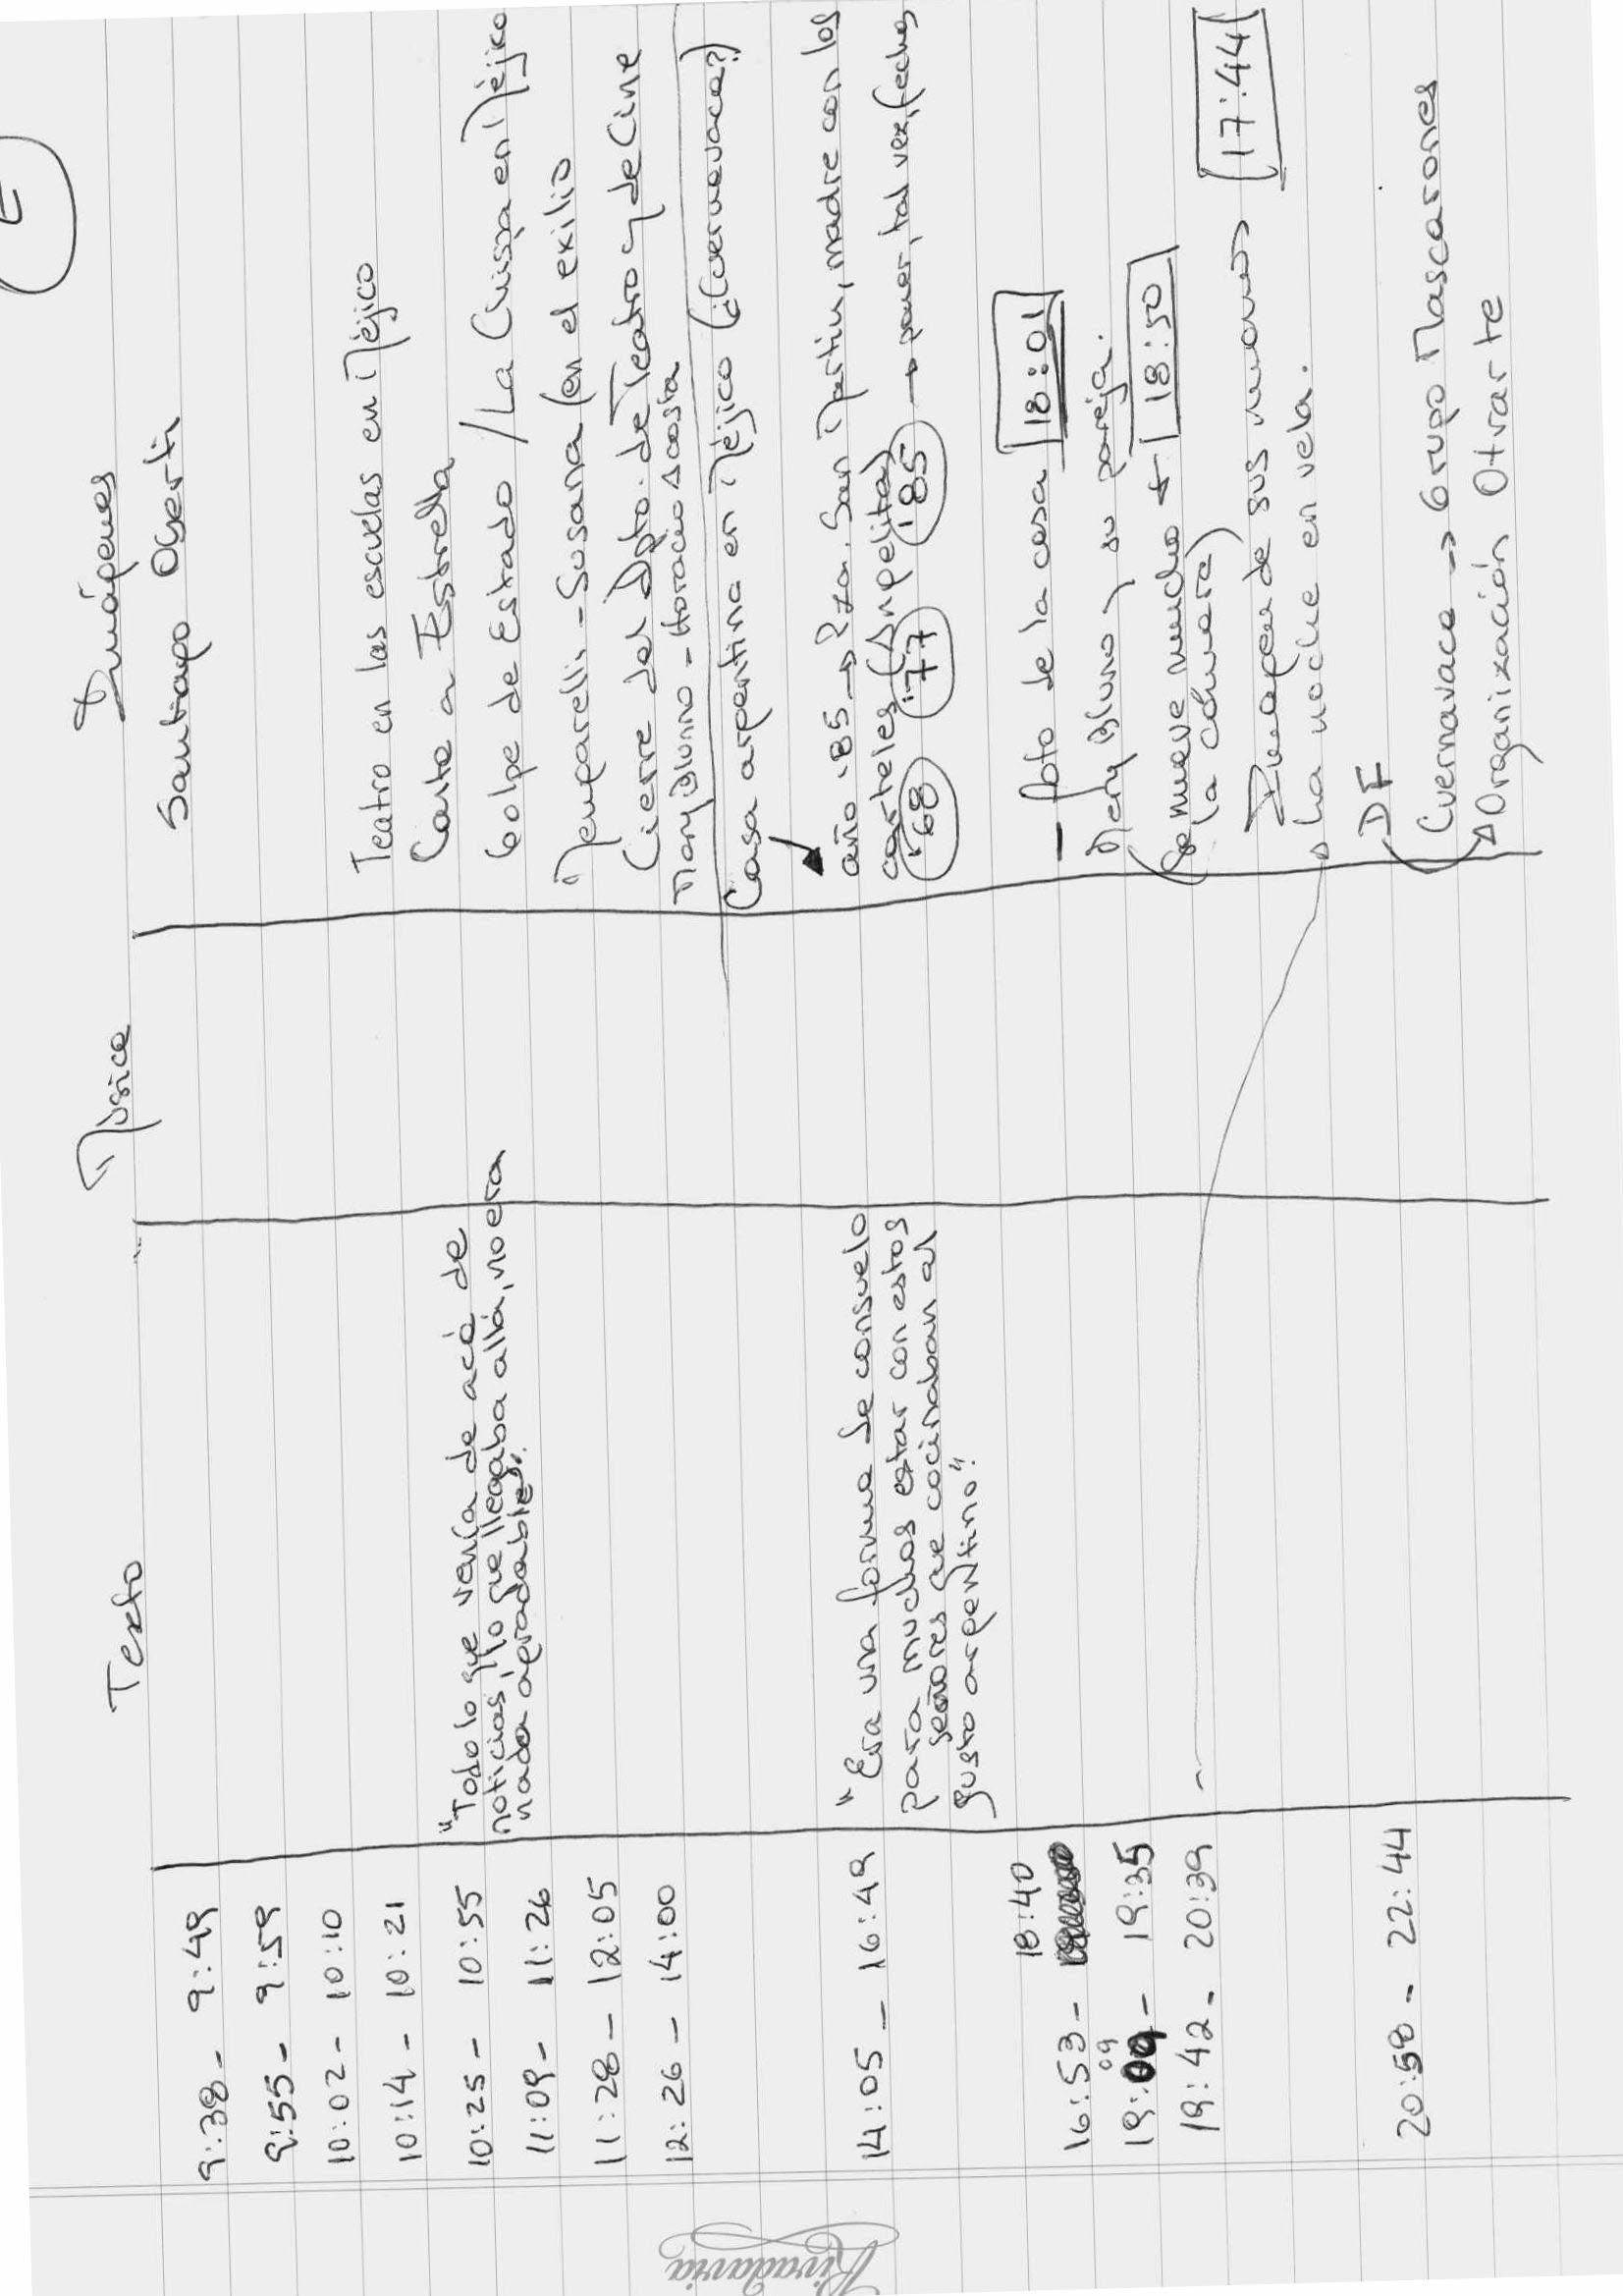 Texto Música Imágenes
9:38 - 9:49 Santiago Oserti
9:55 - 9:59
10:02 - 10:10
10:14 - 10:21 Teatro en las escuelas en Méjico
Carta a Estrella
10:25 - 10:55 "Todo lo que venía de acá de Golpe de Estado / La Chispa en Méjico
noticias, lo que llegaba allá, no era
nada agradable".
11:09 - 11:26 - Susana (en el exilio
11:28 - 12:05 Cierre del Dpto. de Teatro y de Cine
12:26 - 14:00 Mary Blunno - Horacio Acosta
Casa argentina en Méjico (¿Cuernavaca?)
14:05 - 16:49 "Era una forma de consuelo año '85 → Pza. San Martin, madre con los
para muchos estar con estos carteles (Angelita)
señores que cocinaban al '68 '77 '85 → poner, tal vez, fechas
gusto argentino".
18:40
16:53 - - foto de la casa 18:01
09
19: - 19:35 Mery Blunno y su pareja.
19:42 - 20:39 (Se mueve mucho + 18:50
la cámara)
Imagen de sus manos 17:44
La noche en vela.
DF
20:58 - 22:44 Cuernavaca → Grupo Mascarones
Organización Otrarte
Rivadavia